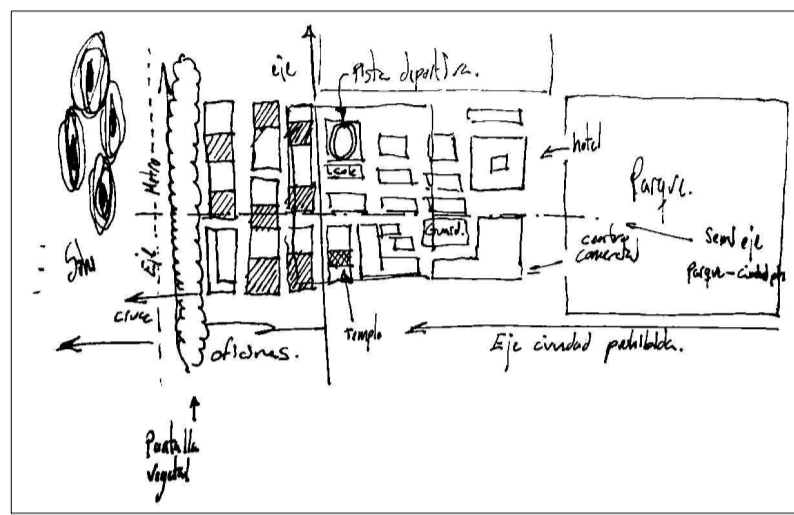 eje
Pista deportiva.
Eje Metro
hotel
Parque.
Guard.
centro
comercial
Semi eje
Parque-ciudad
cruce
oficinas.
templo
Eje ciudad prohibida.
Pantalla
vegetal